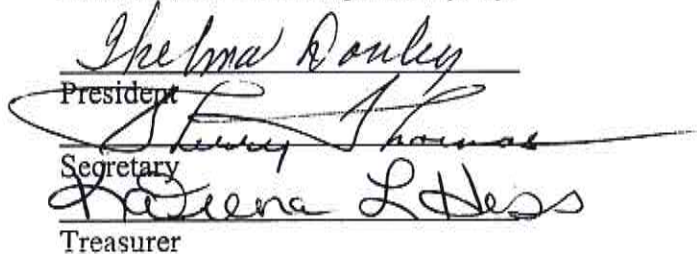 Thelma Donley
President
Sherry Thomas
Secretary
KaTeena L Hess
Treasurer